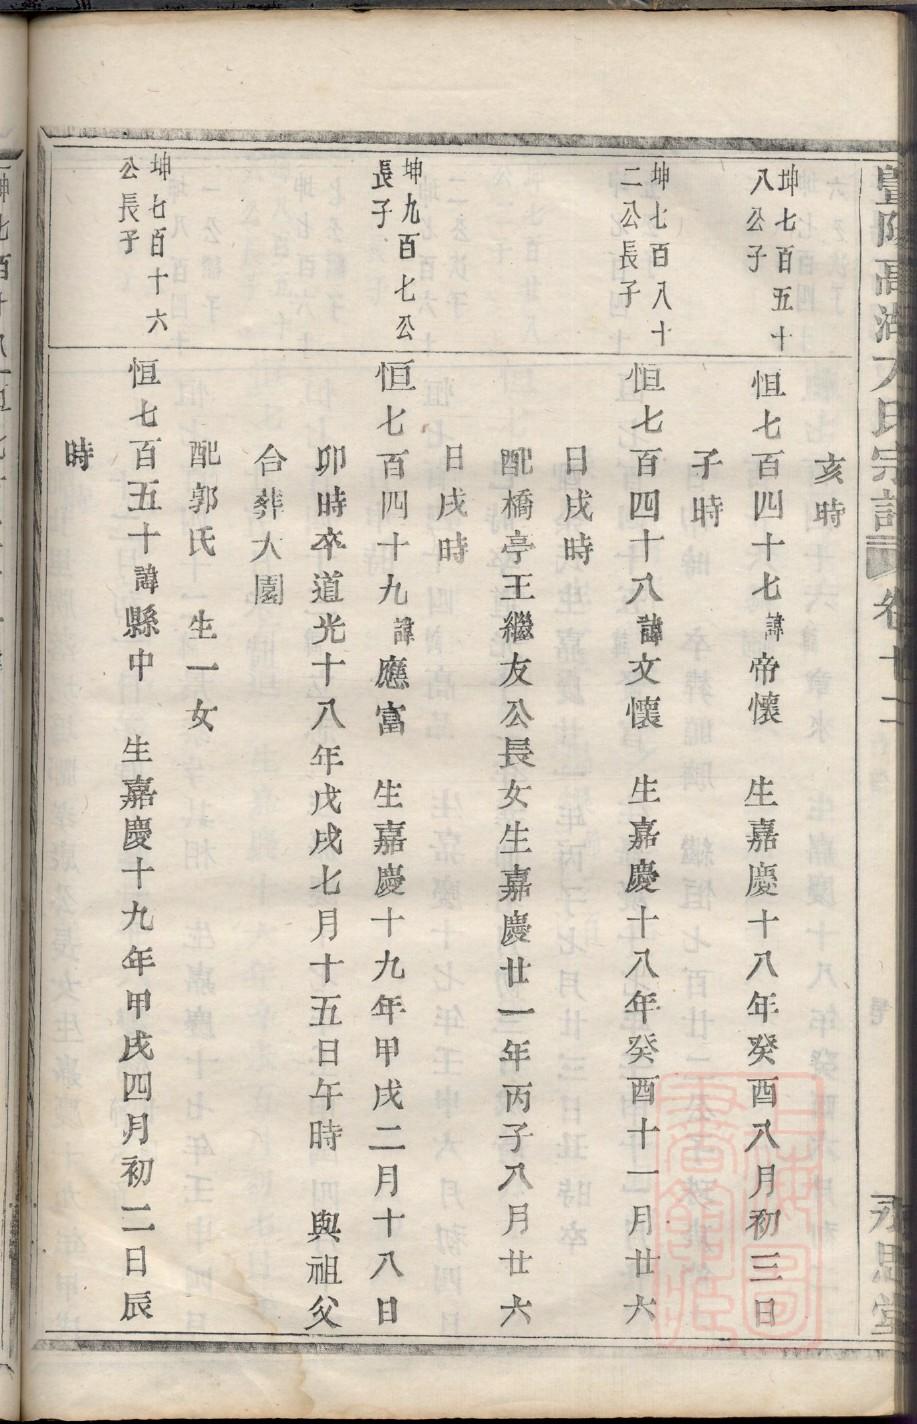 暨陽高湖方氏宗譜 卷 永思堂
亥時
坤七百五十
八公子
恒七百四十七諱帝懷 生嘉慶十八年癸酉八月初三日
子時
坤七百八十
二公長子
恒七百四十八諱文懷 生嘉慶十八年癸酉十一月廿六
日戌時
配橋亭王繼友公長女生嘉慶廿一年丙子八月廿六
日戌時
坤九百七公
長子
恒七百四十九諱應富 生嘉慶十九年甲戌二月十八日
卯時卒道光十八年戊戌七月十五日午時 與祖父
合葬大園
配郭氏 生一女
坤七百十六
公長子
恒七百五十諱縣中 生嘉慶十九年甲戌四月初二日辰
時